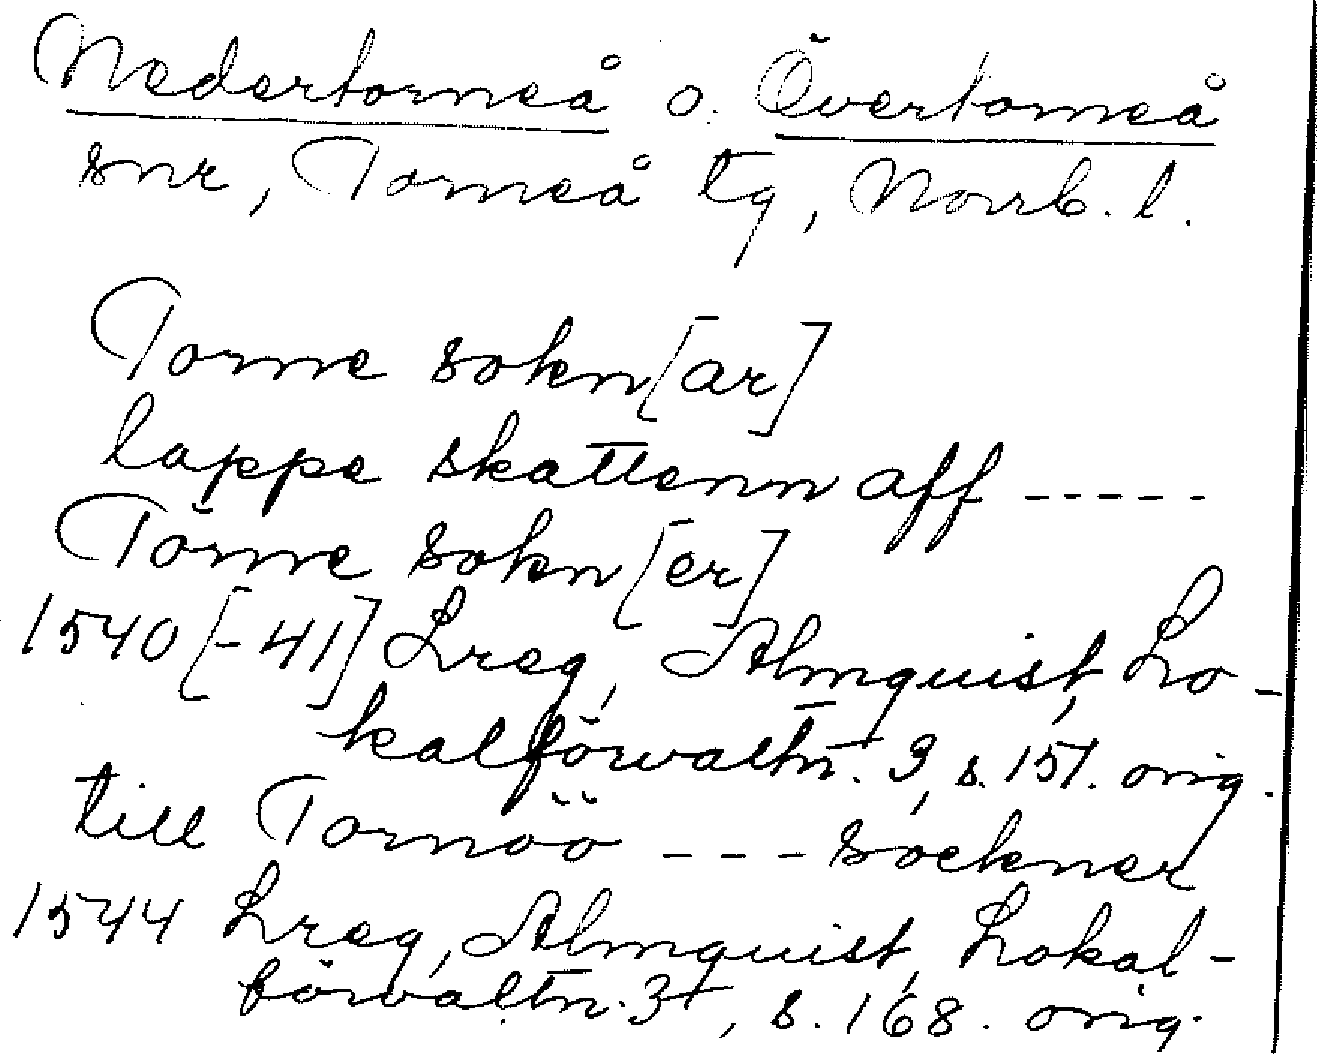 Nedertorneå o. Övertorneå
snr, Torneå tg, Norrb. l.
Torne sokn[ar]
lappe skattenn aff -----
Törne sokn[er]
1540[-41] Lreg, Almquist, Lo-
kalförvaltn. 3, s. 151. orig.
till Tornöö --- sockner
1544 Lreg, Almquist, Lokal-
förvaltn. 3, s. 168. orig.